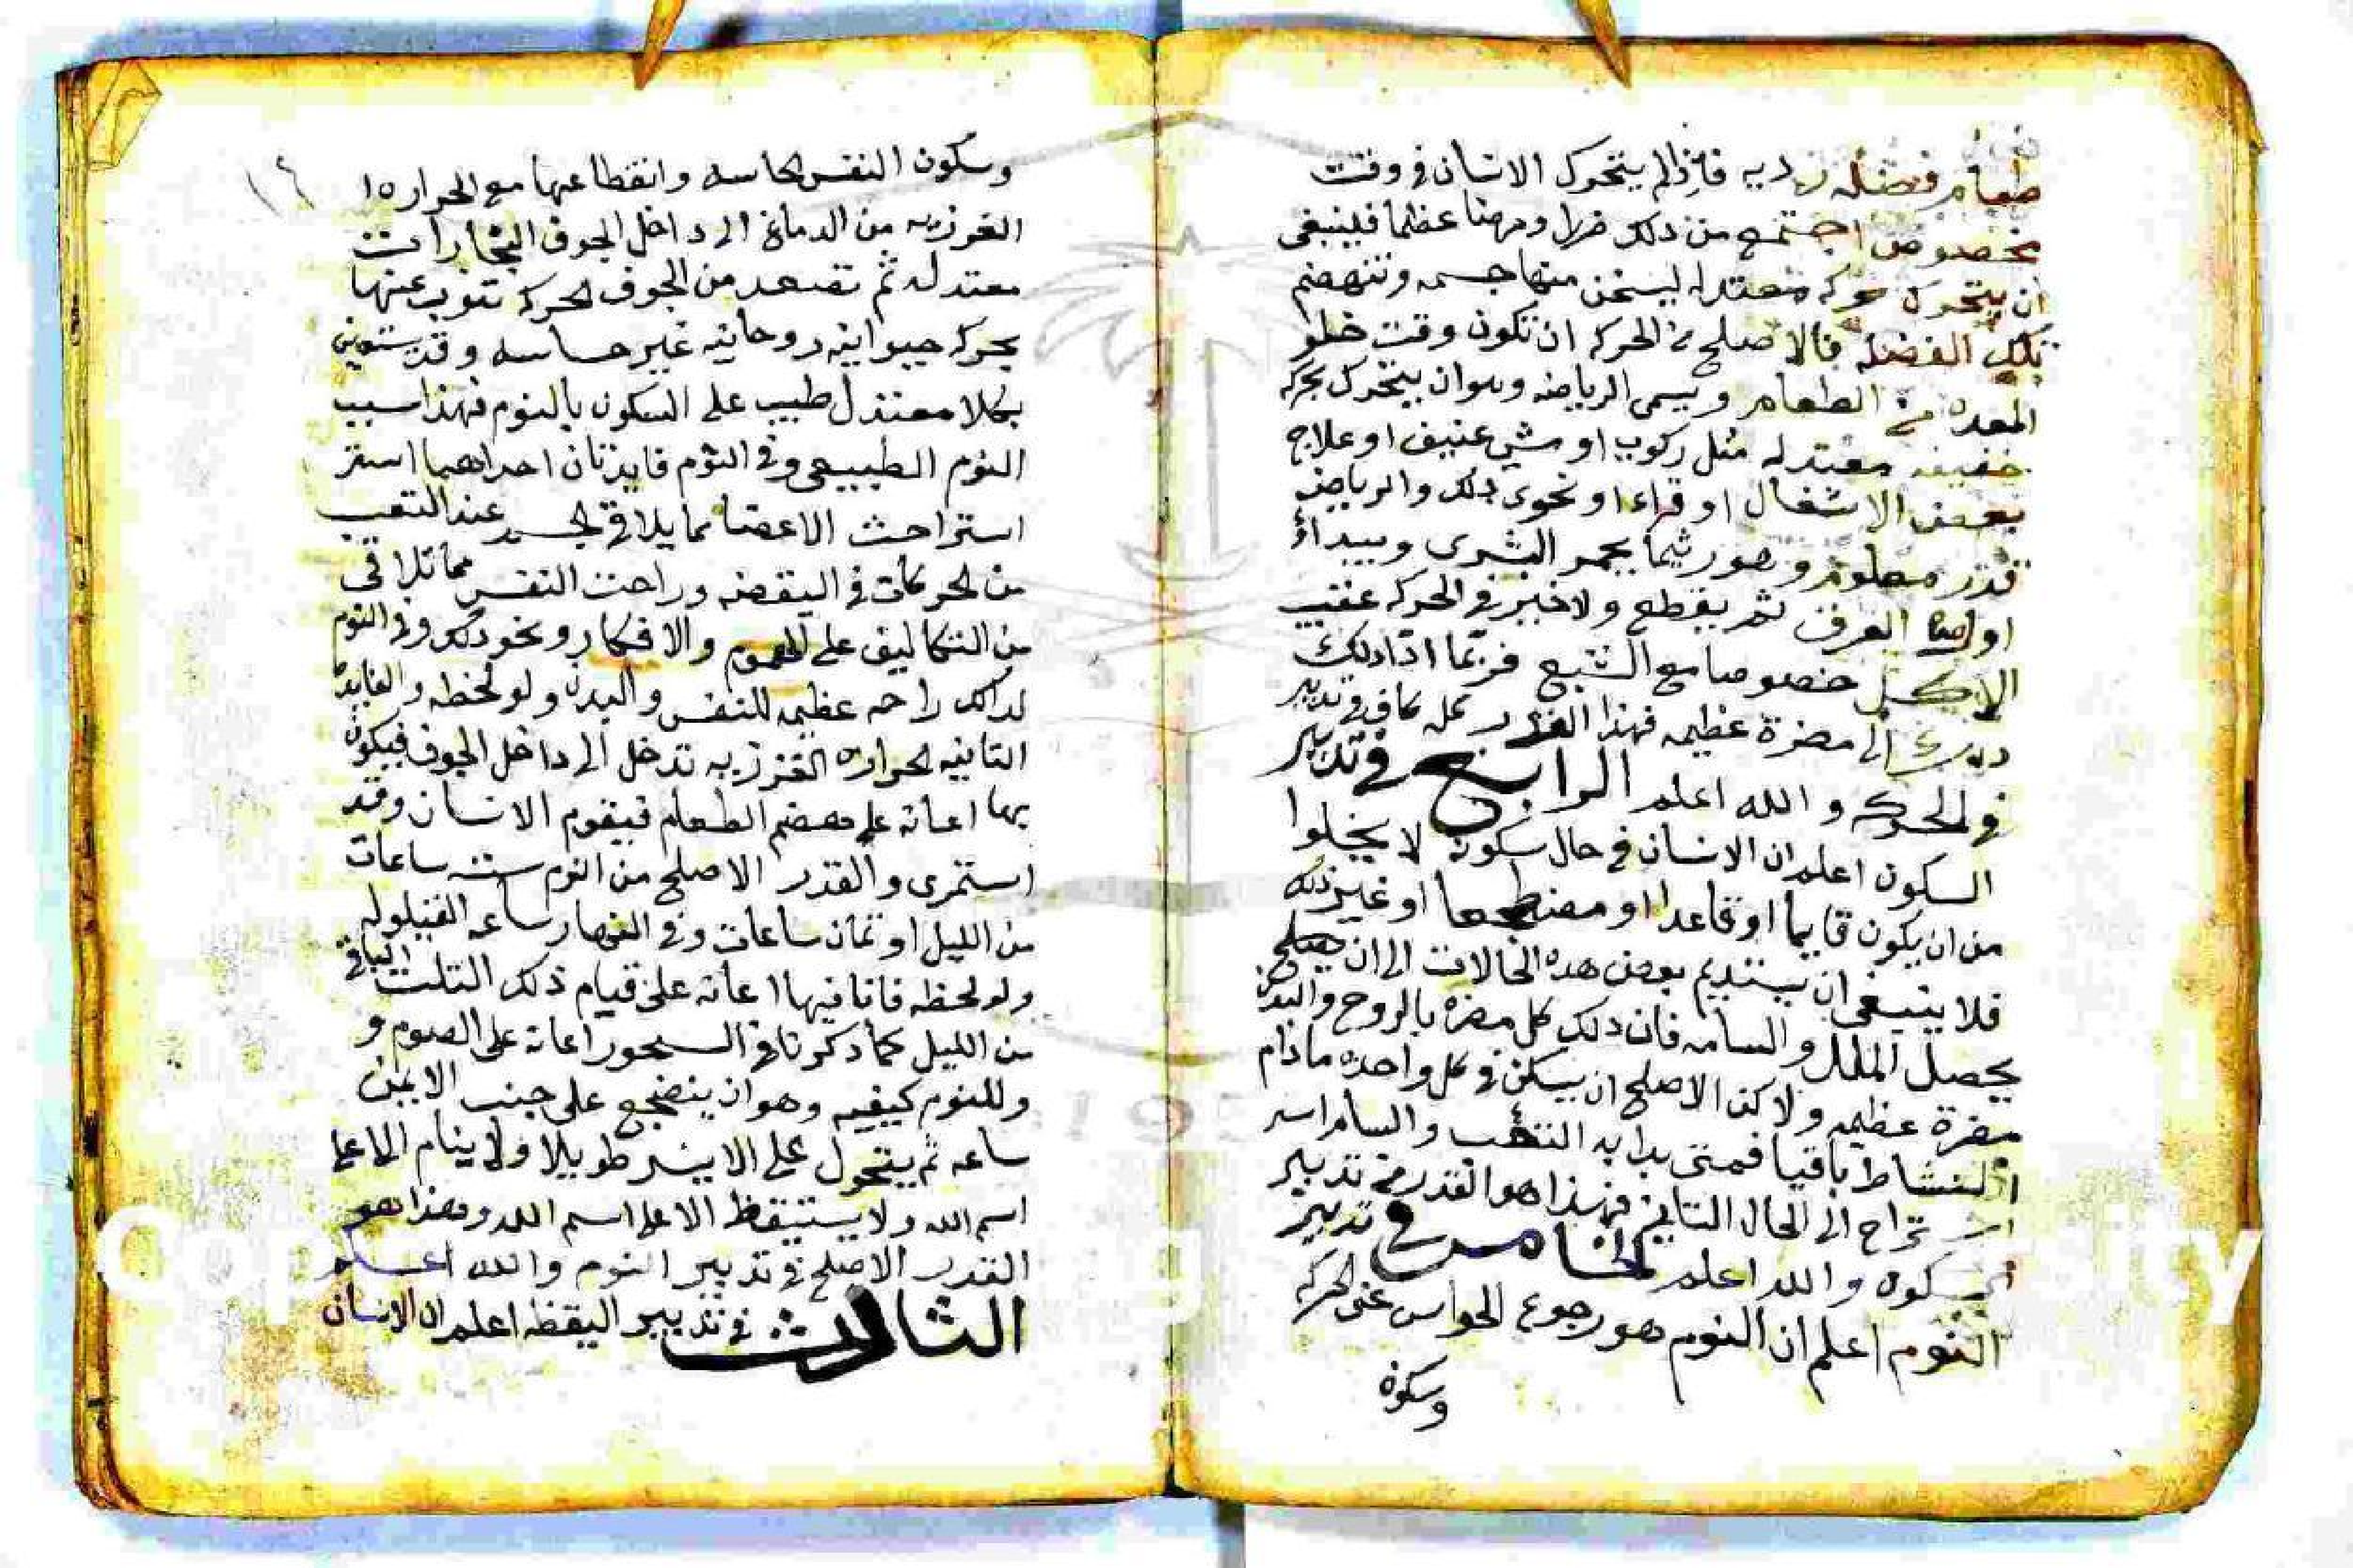 طعام فضله رديه فاذا لم يتحرك الانسان في وقت
مخصوص اجتمع من ذلك ضررا ومرضا عظيما فينبغي
ان يتحرك حركه معتدله ليسخن منها جسمه وتنهضم
تلك الفضله فالاصلح في الحركه ان تكون وقت خلو
المعده من الطعام ويسمى الرياضه وهو ان يتحرك بحركه
خفيفه معتدله مثل ركوب او مشي عنيف او علاج
بعض الاشغال او قراءا او نحوى ذلك والرياضه
قدر معلوم وهو ريثما يحمر البشرى ويبداء
اوايل العرق ثم يقطع ولا خير في الحركه عقيب
الاكل خصوصا مع الشبع فربما ادا ذلك
الى مضرة عظيمه فهذا القدر كله كافي في تدبير
في الحركه والله اعلم الرابع في تدبير
السكون اعلم ان الانسان في حال سكونه لا يخلوا
من ان يكون قايما او قاعدا او مضطجعا او غير ذلك
فلا ينبغي ان يستديم بعض هده الحالات الى ان
يحصل الملل والسامه فان دلك كل مضره بالروح والبدن
مضرة عظيمه ولاكن الاصلح ان يسكن في كل واحده مادام
النشاط باقيا فمتى بدا به التعب والسام
استراح الى الحال الثاني فهذا هو القدر من تدبير
السكون والله اعلم الخامس في تدبير
النوم اعلم ان النوم هو رجوع الحواس عن الحركه
وسكون
١٦
وسكون النفس الحاسه وانقطاعها مع الحراره
الغرزيه من الدماغ الى داخل الجوف البخارات
معتدله ثم تصعد من الجوف لحركه تنوب عنها
بحركه حيوانيه روحانيه غير حساسه وقد يستعين
بكلا معتدل طيب على السكون بالنوم فهذا سبب
النوم الطبيعي وفي النوم فايدتان احداهما استر
استراحت الاعضا مما يلاقي الجسد عند التعب
من الحركات في اليقضه وراحت النفس مما تلاقي
من التكاليف على الهموم والافكار ونحو ذلك وفي النوم
لدالك راحه عظيمه للنفس والبدن ولو لحظه والفايدة
الثانيه الحراره الغرزيه تدخل الى داخل الجوف فيكون
بها اعانه على هضم الطعام فيقوم الانسان وقد
استمرى والقدر الاصلح من النوم ست ساعات
من الليل او ثمان ساعات وفي النهار ساعه القيلوله
ولو لحظه فانا فيها اعانه على قيام ذلك الثلث الباقي
من الليل كما دكرنا في السحور اعانه على الصوم و
وللنوم كيفيه وهو ان ينضجع على جنب الايمن
ساعه ثم يتحول على الايسر طويلا ولا ينام الا على
اسم الله ولا يستيقظ الا على اسم الله وهذا هو
القدر الاصلح في تدبير النوم والله اعلم
الثالث في تدبير اليقظه اعلم ان الانسان